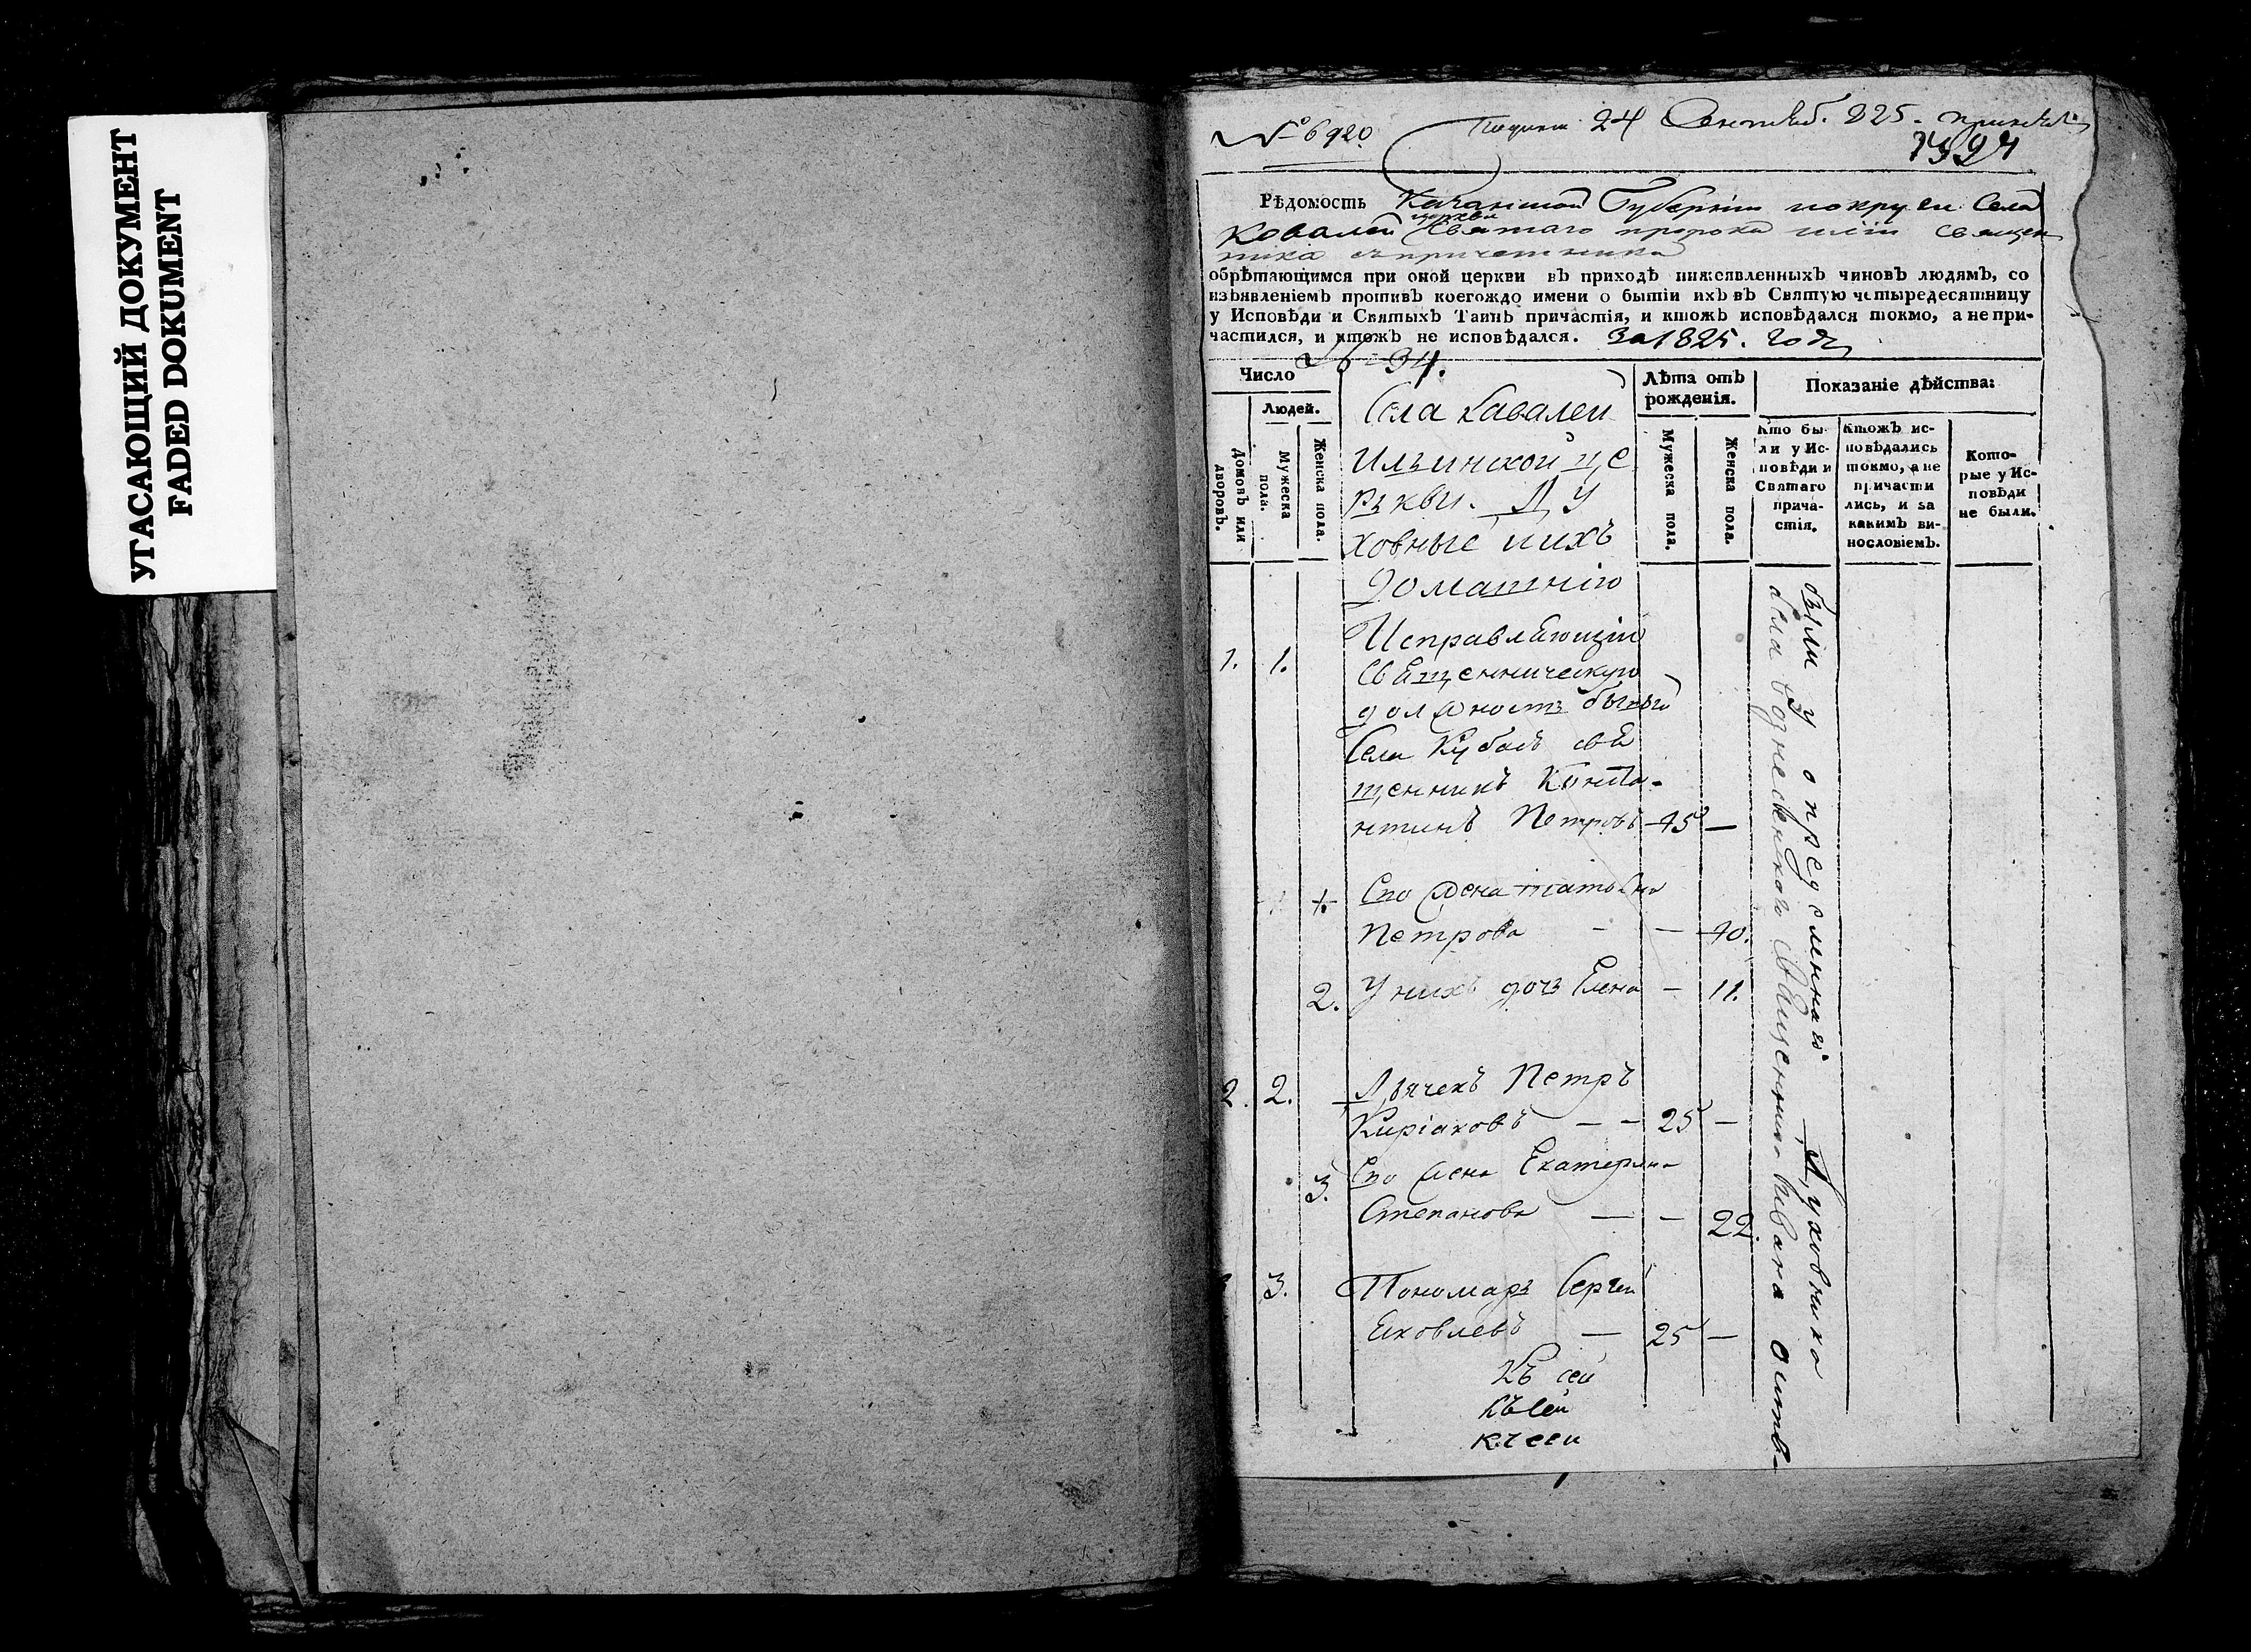 УГАСАЮЩИЙ ДОКУМЕНТ
FADED DOKUMENT
№ 6920 24 825
Вѣдомость Казанской Губерніи округи Села
Ковалей церкви Святаго пророка иліи священ
ника
обрѣтающимся при оной церкви въ приходѣ нижеявленныхъ чиновъ людямъ, со
изъявленіемъ противъ коегождо имени о бытіи ихъ въ Святую четыредесятницу
у Исповѣди и Святыхъ Таинъ причастія, и ктожъ исповѣдался токмо, а не при-
частился, и ктожъ не исповѣдался. За 1825. годъ
34.
Число
Людей.
Домовъ или дворовъ.
Мужеска пола.
Женска пола.
Лѣта отъ
рожденія.
Мужеска пола.
Женска пола.
Показаніе дѣйства:
Кто бы-
ли у Ис-
повѣди и
Святаго
прича-
стія.
Ктожъ ис-
повѣдались
токмо, а не
причасти
лись, и за
какимъ ви-
нословіемъ.
Кото-
рые у Ис-
повѣди
не были.
Села Кавалей
Ильинской це
рькви. Ду
ховные иихъ
Домашнію
Исправляющій
1. 1. Священническую
должность бывый
Села Кубасъ свя
щенникъ Конста-
нтинъ Петровъ 45 —
1. Его жена татьяна
Петрова - — 40.
2. У нихъ дочь Елена - 11.
2. 2. Дьячекъ Петръ
Киріаковъ — - 25 —
3. Его жена Екатерина
Степанова — - 22.
3. Пономарь Сергѣй
Яковлевъ — 25 —
Къ сей
Къ сей
къ сей
были у опредѣленнаго Духовника
Священника Ивана